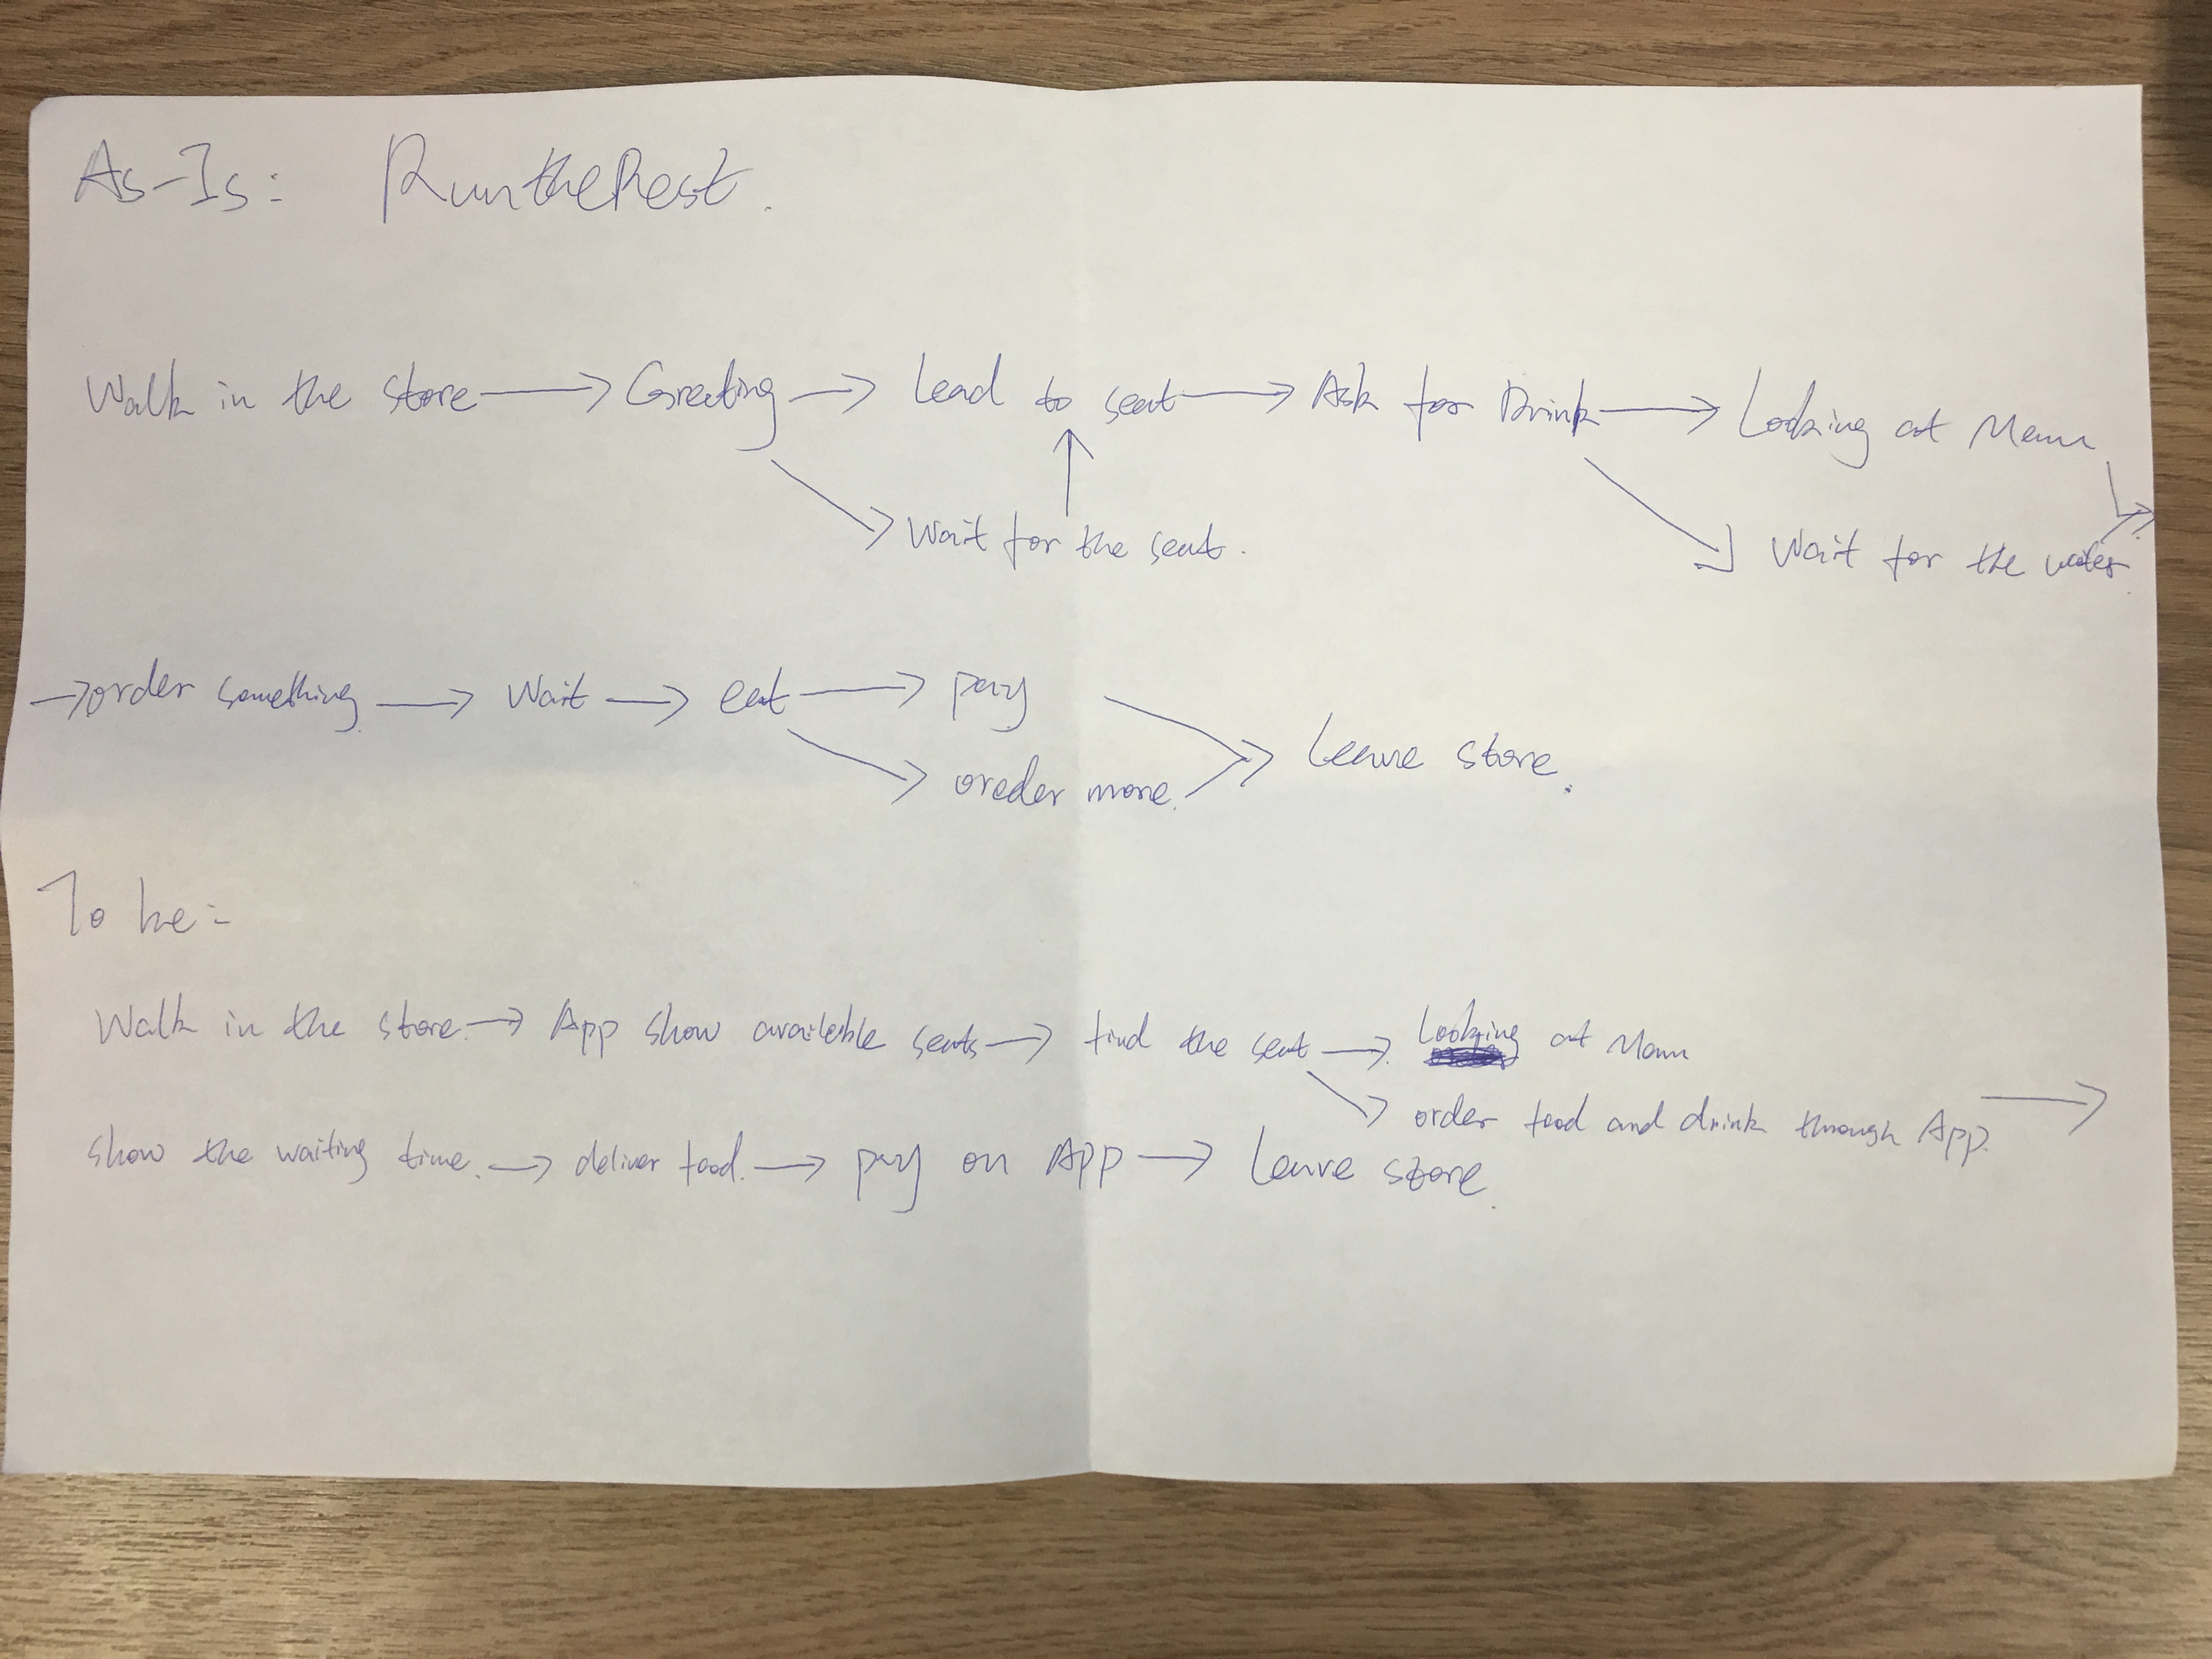 As-Is: RuntheRest.
Walk in the store → Greeting → Lead to seat → Ask for Drink → Looking at Menu
→ Wait for the seat. → Wait for the water.
→ order something → Wait → eat → pay
→ oreder more. → Leave store.
To be:-
Walk in the store. → App show available seats → find the seat → Looking at Menu
→ order food and drink through App. →
show the waiting time. → deliver food. → pay on App → Leave store.